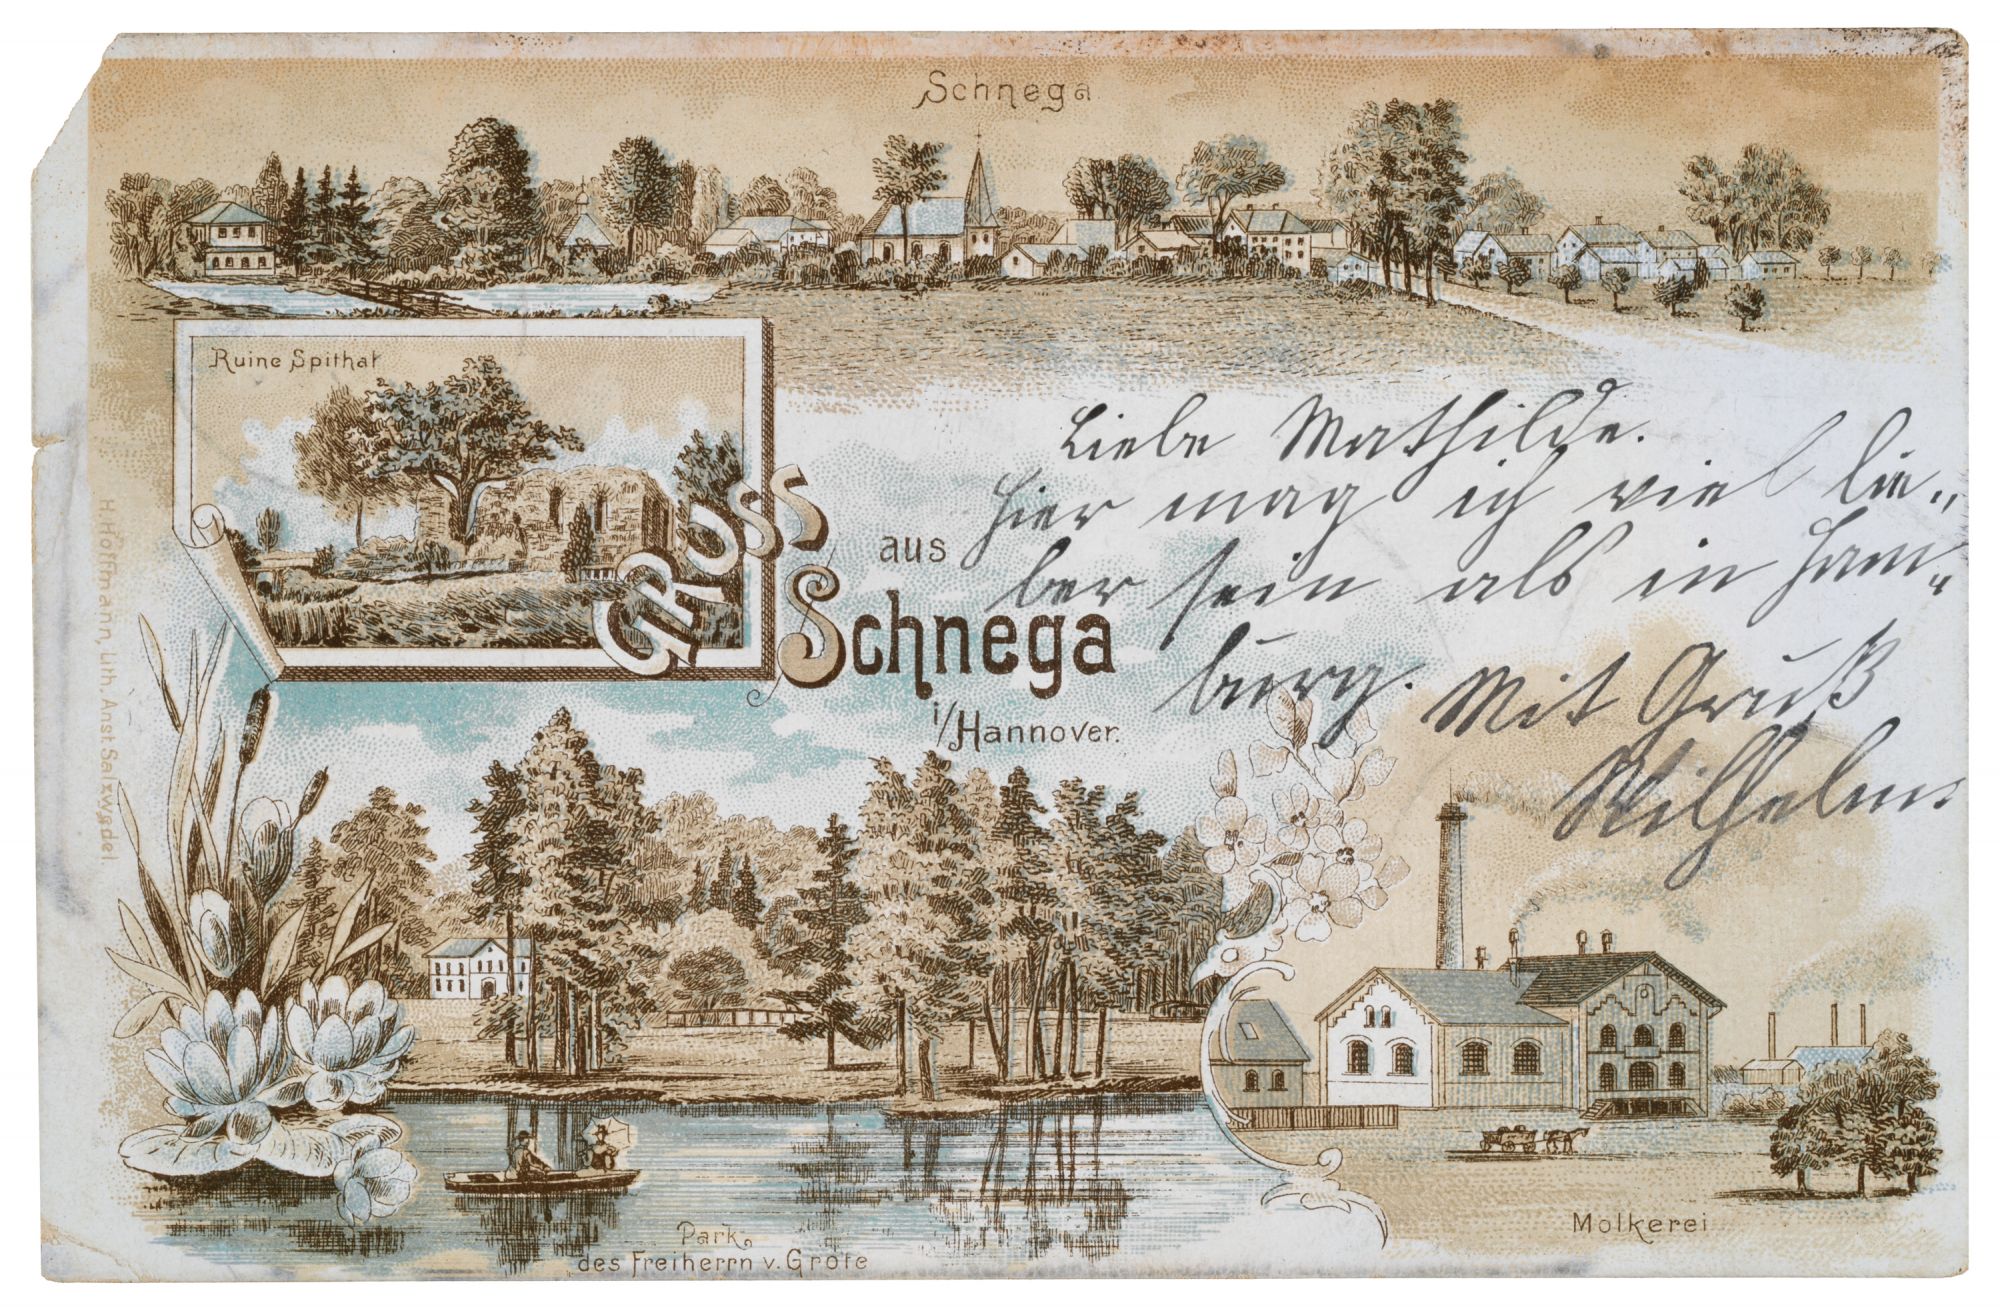 Schnega
Ruine Spithal
Gross
aus
Schnega
i/Hannover.
Liebe Mathilde.
Hier mag ich viel lie„
ber sein als in Ham„
burg. Mit Gruß
Wilhelm.
H. Hoffmann, Lith. Anst Salzwedel
Park
des Freiherrn v. Grote
Molkerei